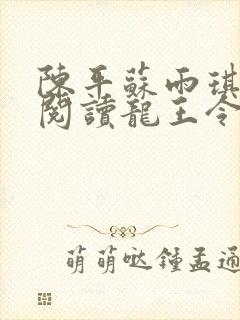 陳平蘇雨琪
閱讀龍王令
萌萌哒鍾孟通